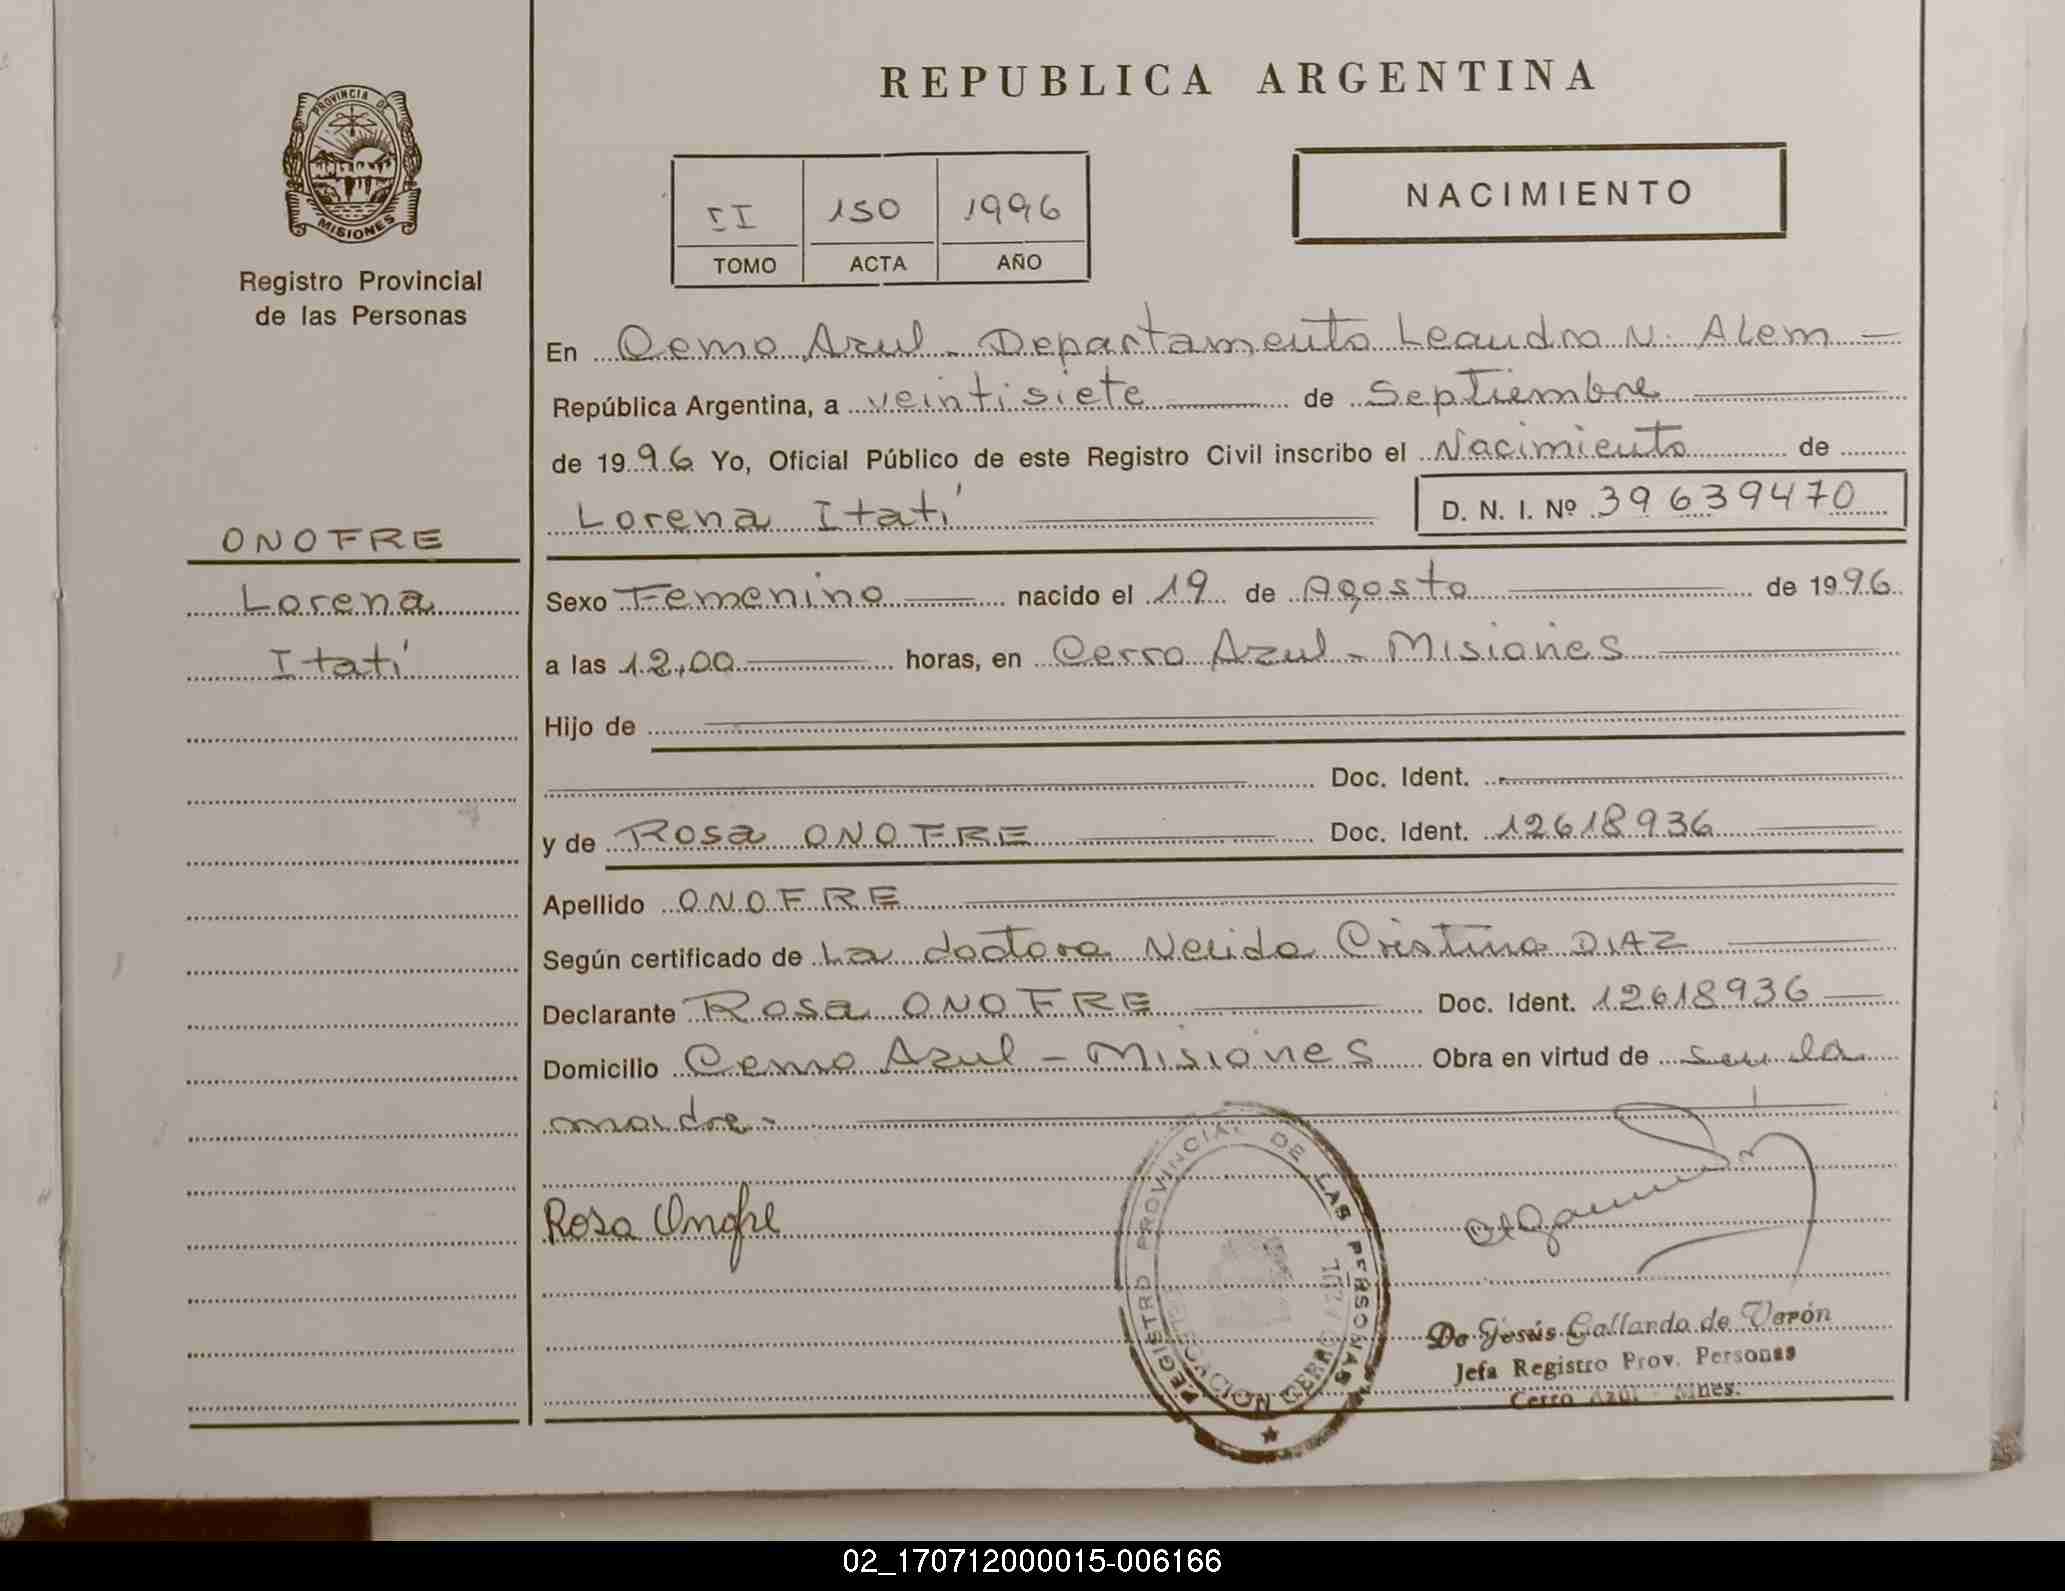 REPUBLICA ARGENTINA
PROVINCIA DE
MISIONES
Registro Provincial
de las Personas
II 150 1996
TOMO ACTA AÑO
NACIMIENTO
En Cerro Azul - Departamento Leandro N. Alem -
República Argentina, a veintisiete de Septiembre
de 1996 Yo, Oficial Público de este Registro Civil inscribo el Nacimiento de
Lorena Itatí D. N. I. Nº 39639470
ONOFRE
Lorena
Itatí
Sexo Femenino nacido el 19 de Agosto de 1996
a las 12,00 horas, en Cerro Azul - Misiones
Hijo de
Doc. Ident.
y de Rosa ONOFRE Doc. Ident. 12618936
Apellido ONOFRE
Según certificado de La doctora Nelida Cristina DIAZ
Declarante Rosa ONOFRE Doc. Ident. 12618936
Domicilio Cerro Azul - Misiones Obra en virtud de ser la
madre.-
Rosa Onofre
REGISTRO PROVINCIAL DE LAS PERSONAS
De Jesús Gallardo de Verón
Jefa Registro Prov. Personas
Cerro Azul - Mnes.
02_170712000015-006166